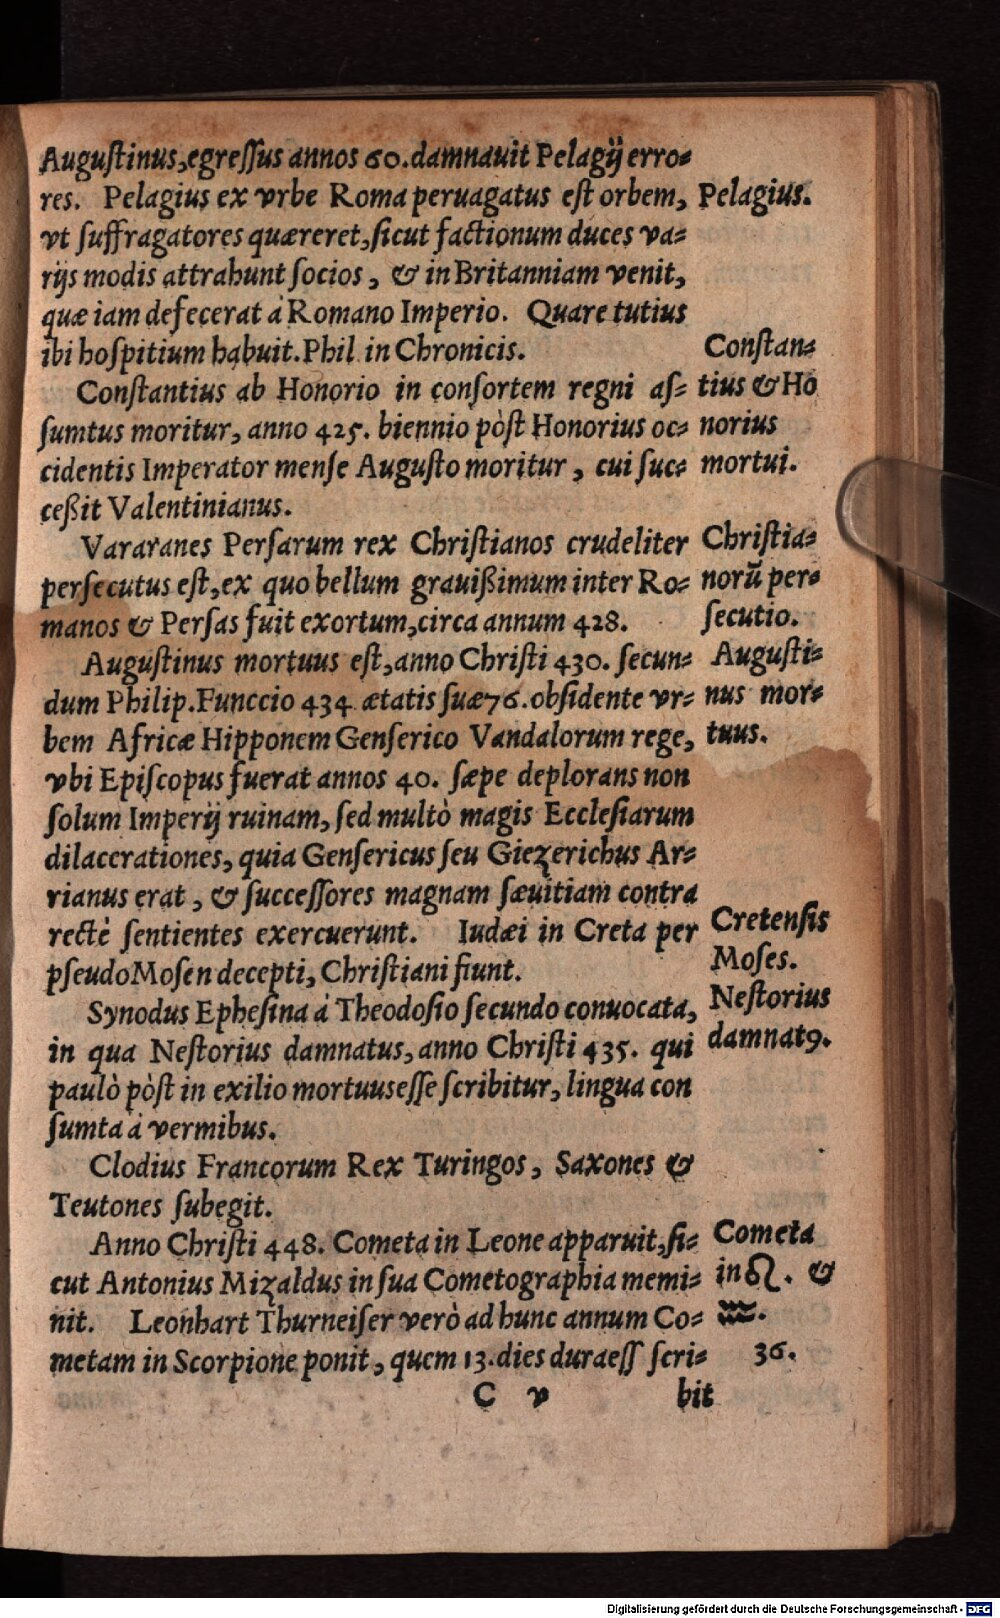 Auguſtinus, egreſſus annos 60. damnauit Pelagij erro⸗
res. Pelagius ex vrbe Roma peruagatus eſt orbem,
vt ſuffragatores quæreret, ſicut factionum duces va⸗
rijs modis attrahunt ſocios, & in Britanniam venit,
quæ iam defecerat à Romano Imperio. Quare tutius
ibi hoſpitium habuit. Phil in Chronicis.
Conſtantius ab Honorio in conſortem regni aſ⸗
ſumtus moritur, anno 425. biennio pòſt Honorius oc⸗
cidentis Imperator menſe Auguſto moritur, cui ſuc⸗
ceßit Valentinianus.
Vararanes Perſarum rex Chriſtianos crudeliter
perſecutus eſt, ex quo bellum grauißimum inter Ro⸗
manos & Perſas fuit exortum, circa annum 428.
Auguſtinus mortuus eſt, anno Chriſti 430. ſecun⸗
dum Philip. Funccio 434 ætatis ſuæ 76. obſidente vr⸗
bem Africæ Hipponem Genſerico Vandalorum rege,
vbi Epiſcopus fuerat annos 40. ſæpe deplorans non
ſolum Imperij ruinam, ſed multò magis Eccleſiarum
dilaccrationes, quia Genſericus ſeu Giezerichus Ar⸗
rianus erat, & ſucceſſores magnam ſæuitiam contra
rectè ſentientes exercuerunt. Iudæi in Creta per
pſeudoMoſen decepti, Chriſtiani fiunt.
Synodus Epheſina à Theodoſio ſecundo conuocata,
in qua Neſtorius damnatus, anno Chriſti 435. qui
paulò pòſt in exilio mortuus eſſe ſcribitur, lingua con
ſumta à vermibus.
Clodius Francorum Rex Turingos, Saxones &
Teutones ſubegit.
Anno Chriſti 448. Cometa in Leone apparuit, ſi⸗
cut Antonius Mizaldus in ſua Cometographia memi⸗
nit. Leonhart Thurneiſer verò ad hunc annum Co⸗
metam in Scorpione ponit, quem 13. dies duraeſſ ſcri⸗
C v bit
Pelagius.
Conſtan⸗
tius & Ho
norius
mortui.
Chriſtia⸗
norū per⸗
ſecutio.
Auguſti⸗
nus mor⸗
tuus.
Cretenſis
Moſes.
Neſtorius
damnatꝰ.
Cometa
in ♌. &
♒.
36.
Digitalisierung gefördert durch die Deutsche Forschungsgemeinschaft - DFG